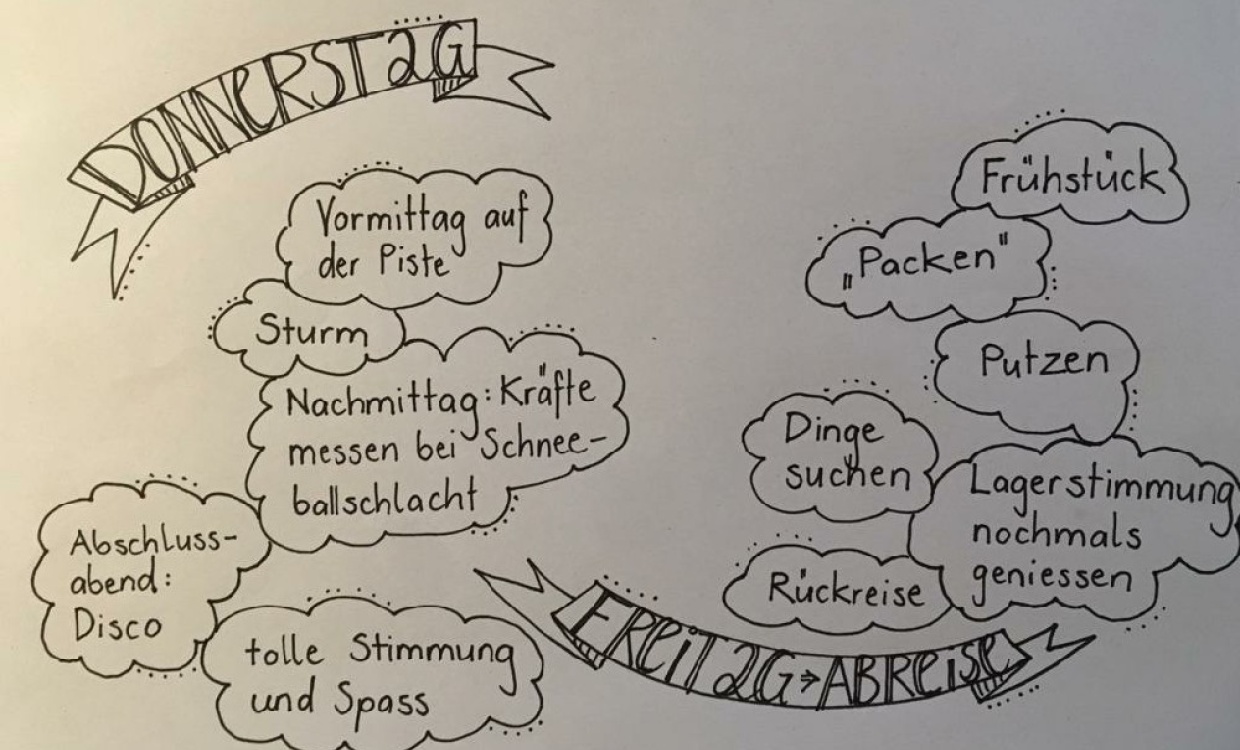 DONNERSTAG
Vormittag auf
der Piste
Sturm
Nachmittag: Kräfte
messen bei Schnee-
ballschlacht
Abschluss-
abend:
Disco
tolle Stimmung
und Spass
Frühstück
„Packen"
Putzen
Dinge
suchen
Lagerstimmung
nochmals
geniessen
Rückreise
FREITAG → ABREISE